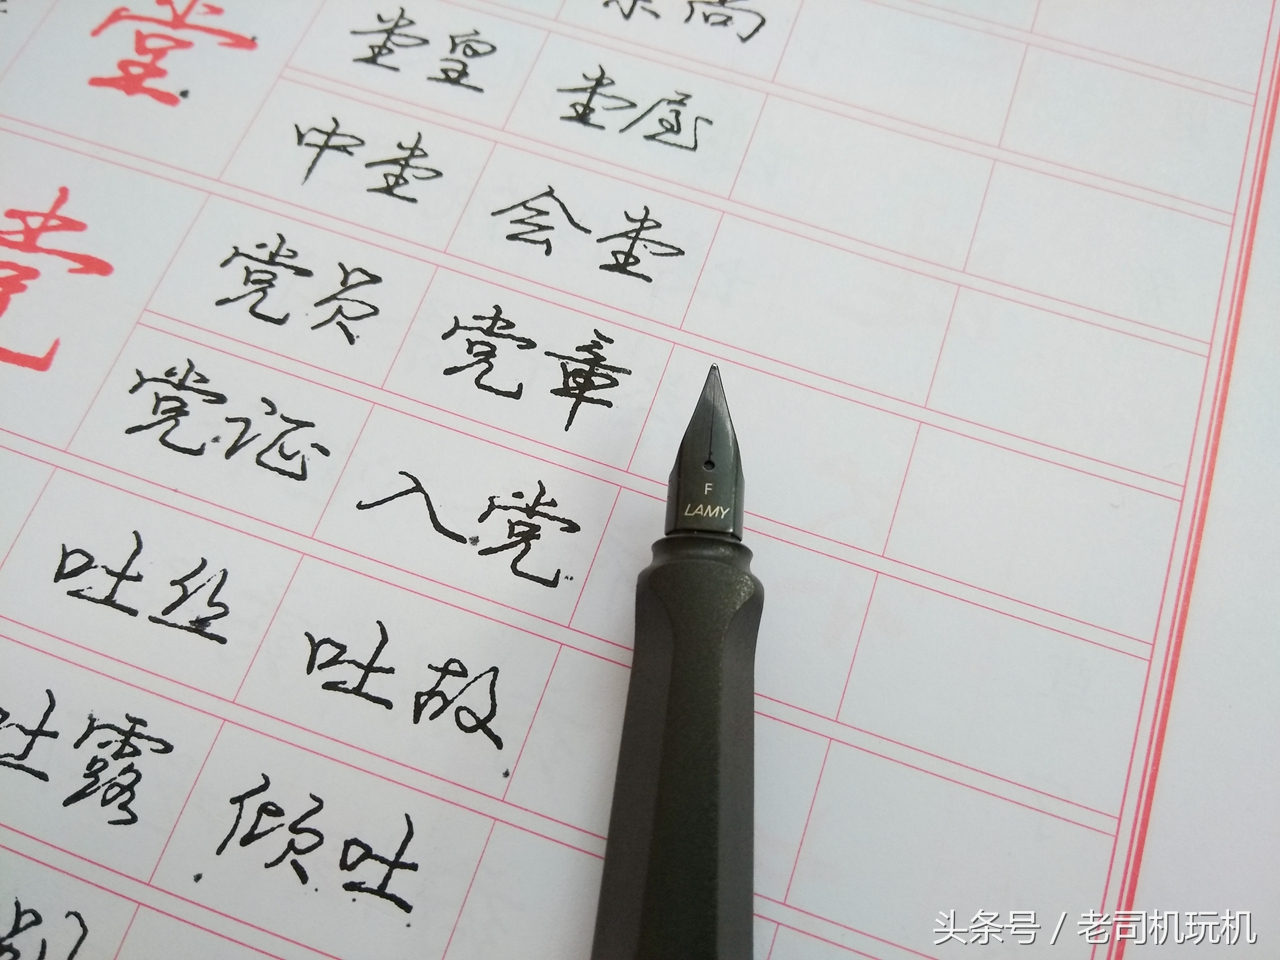 尚
堂 堂皇 堂屋
中堂 会堂
党 党员 党章
党证 入党
吐丝 吐故
吐露 倾吐
F
LAMY
头条号 / 老司机玩机